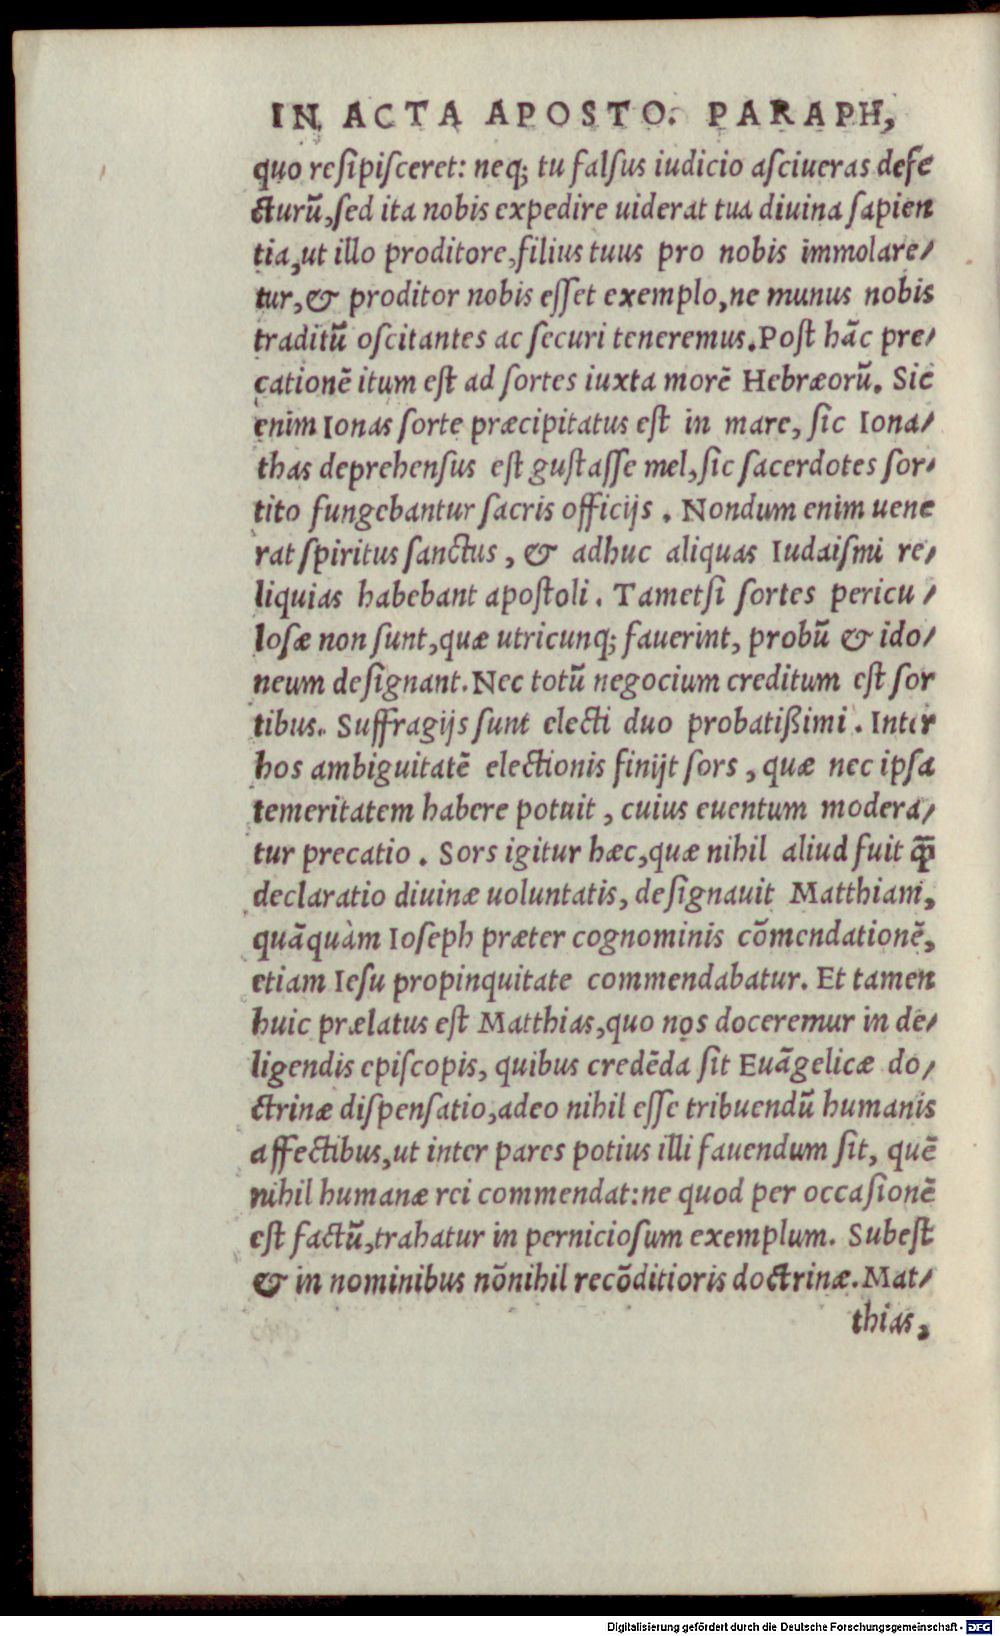 IN ACTA APOSTO. PARAPH,
quo resipisceret: neq; tu falsus iudicio asciueras defe
cturũ, sed ita nobis expedire uiderat tua diuina sapien
tia, ut illo proditore, filius tuus pro nobis immolare/
tur, & proditor nobis esset exemplo, ne munus nobis
traditũ oscitantes ac securi teneremus. Post hãc pre/
cationẽ itum est ad sortes iuxta morẽ Hebræorũ. Sic
enim Ionas sorte præcipitatus est in mare, sic Iona/
thas deprehensus est gustasse mel, sic sacerdotes sor/
tito fungebantur sacris officijs. Nondum enim uene
rat spiritus sanctus, & adhuc aliquas Iudaismi re/
liquias habebant apostoli. Tametsi sortes pericu/
losæ non sunt, quæ utricunq; fauerint, probũ & ido/
neum designant. Nec totũ negocium creditum est sor
tibus. Suffragijs sunt electi duo probatißimi. Inter
hos ambiguitatẽ electionis finijt sors, quæ nec ipsa
temeritatem habere potuit, cuius euentum modera/
tur precatio. Sors igitur hæc, quæ nihil aliud fuit q̃
declaratio diuinæ uoluntatis, designauit Matthiam,
quãquàm Ioseph præter cognominis cõmendationẽ,
etiam Iesu propinquitate commendabatur. Et tamen
huic prælatus est Matthias, quo nos doceremur in de/
ligendis episcopis, quibus credẽda sit Euãgelicæ do/
ctrinæ dispensatio, adeo nihil esse tribuendũ humanis
affectibus, ut inter pares potius illi fauendum sit, quẽ
nihil humanæ rei commendat: ne quod per occasionẽ
est factũ, trahatur in perniciosum exemplum. Subest
& in nominibus nõnihil recõditioris doctrinæ. Mat/
thias,
Digitalisierung gefördert durch die Deutsche Forschungsgemeinschaft - DFG